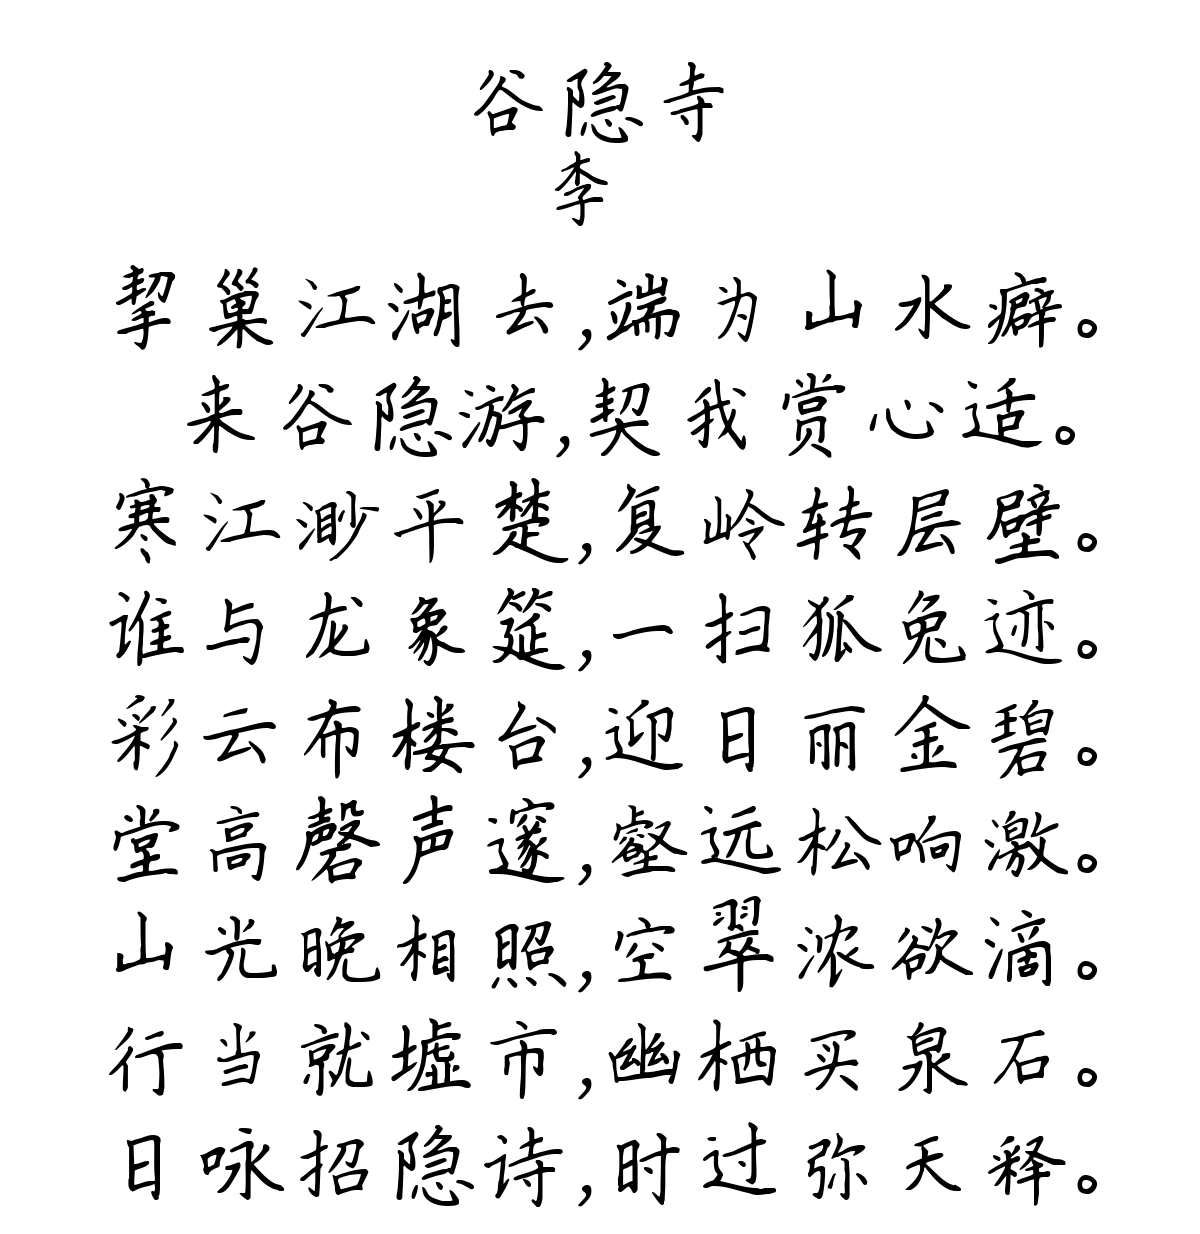 谷隐寺
李
挈巢江湖去,端为山水癖。
来谷隐游,契我赏心适。
寒江渺平楚,复岭转层壁。
谁与龙象筵,一扫狐兔迹。
彩云布楼台,迎日丽金碧。
堂高磬声邃,壑远松响激。
山光晚相照,空翠浓欲滴。
行当就墟市,幽栖买泉石。
日咏招隐诗,时过弥天释。